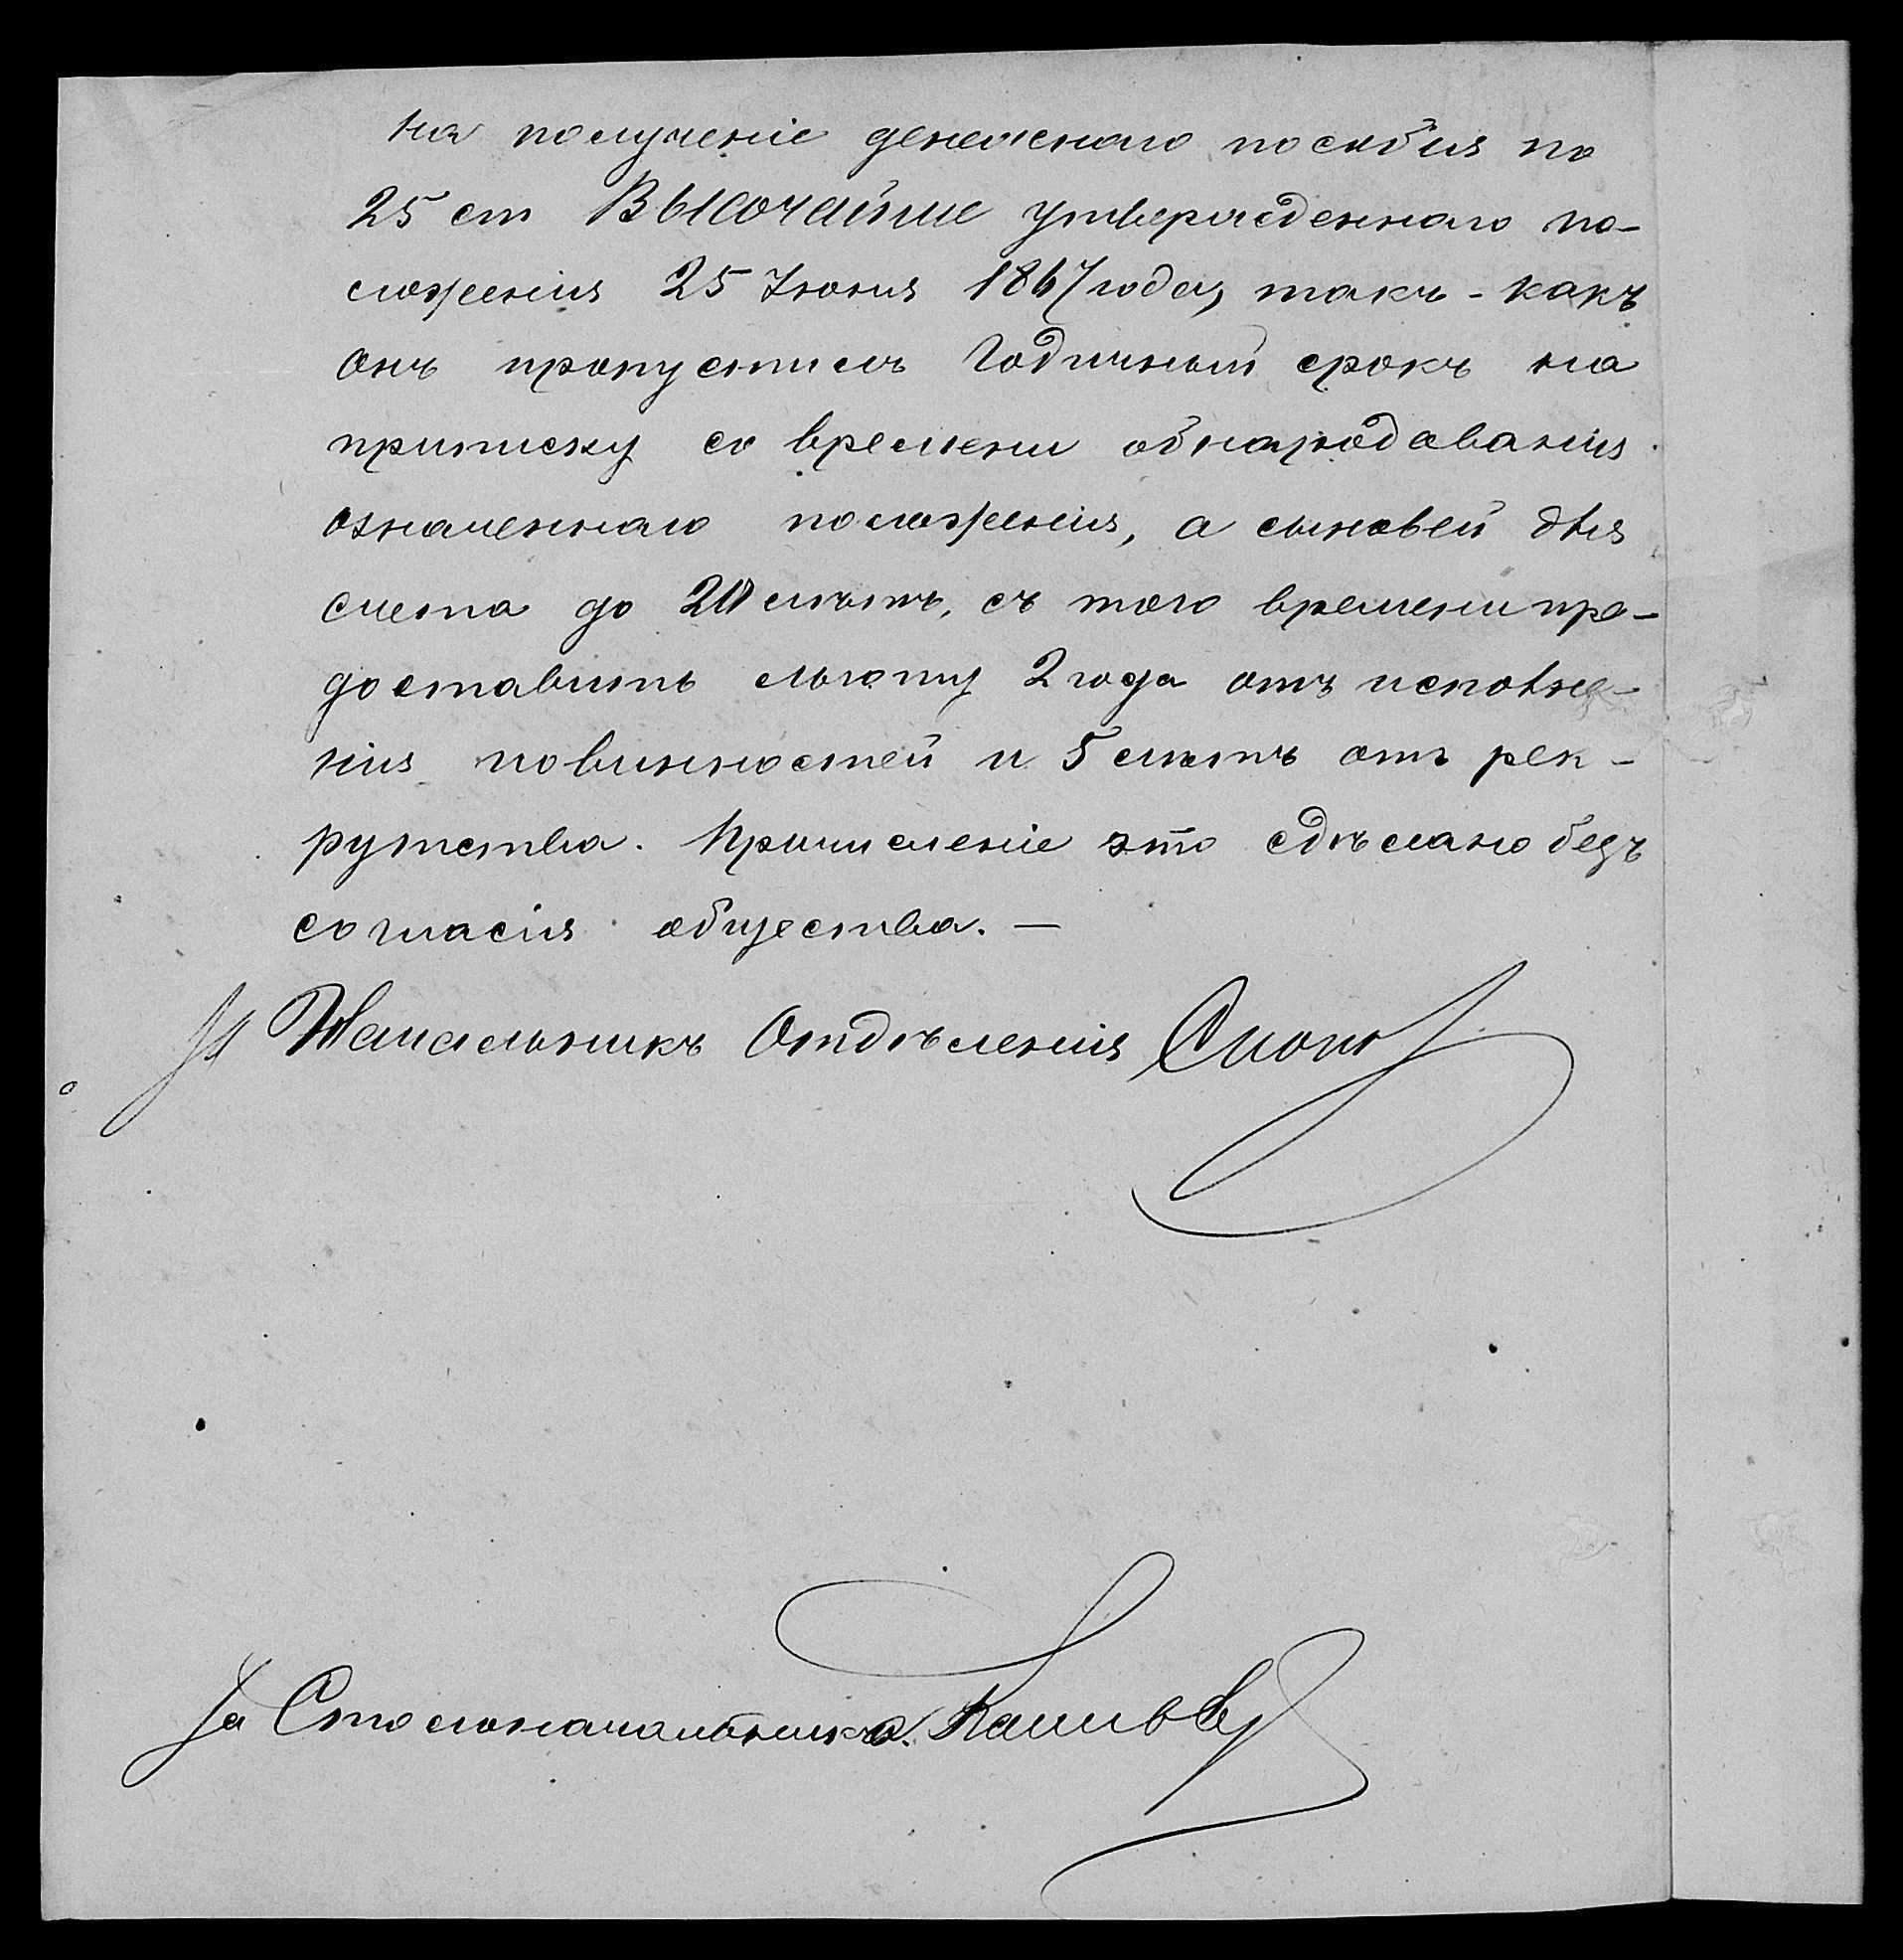 на получение денежнаго пособия по
25 ст Высочайше утвержденнаго по-
ложенія 25 Іюня 1867 года, такъ-какъ
онъ пропустилъ годичный срокъ на
приписку со времени обнародаванія
означеннаго положенія, а сыновей для
счета до 20 лѣтъ, съ того времени пре-
доставить льготу 2 года отъ исполне-
нія повинностей и 5 лѣтъ отъ рек-
рутства. Причисленіе это сдѣлано безъ
согласія общества. —
За Начальникъ Отдѣленія
За Столоначальника